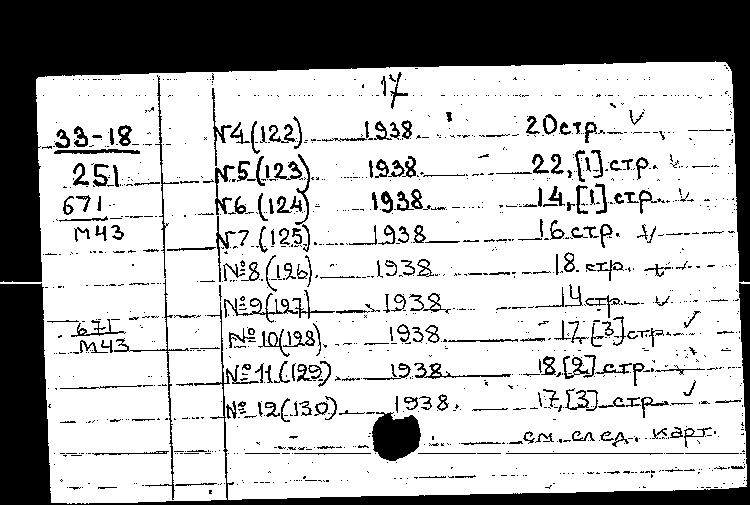 17
33-18
251
671
М43
671
М43
№4(122) 1938. 20стр.
№5(123) 1938. 22,[1] стр.
№6(124) 1938. 14,[1] стр.
№7(125) 1938 16 стр.
№8(126) 1938 18 стр.
№9(127) 1938. 14 стр.
№10(128). 1938. 17,[3] стр.
№11(129) 1938. 18,[2] стр.
№12(130). 1938. 17,[3] стр.
см. след. карт.